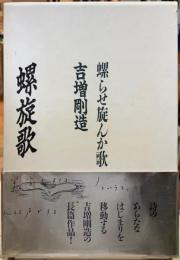 螺らせ旋んか歌
吉増剛造
螺旋歌
詩の
あらたな
はじまりを
移動する
吉増剛造の
長篇作品!